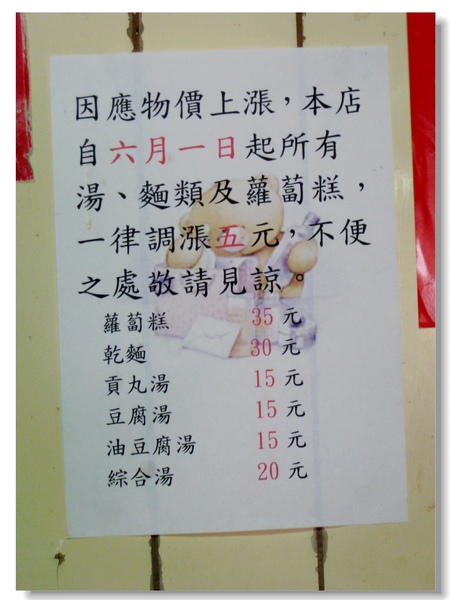 因應物價上漲，本店
自六月一日起所有
湯、麵類及蘿蔔糕，
一律調漲五元，不便
之處敬請見諒。
蘿蔔糕 35 元
乾麵 30 元
貢丸湯 15 元
豆腐湯 15 元
油豆腐湯 15 元
綜合湯 20 元